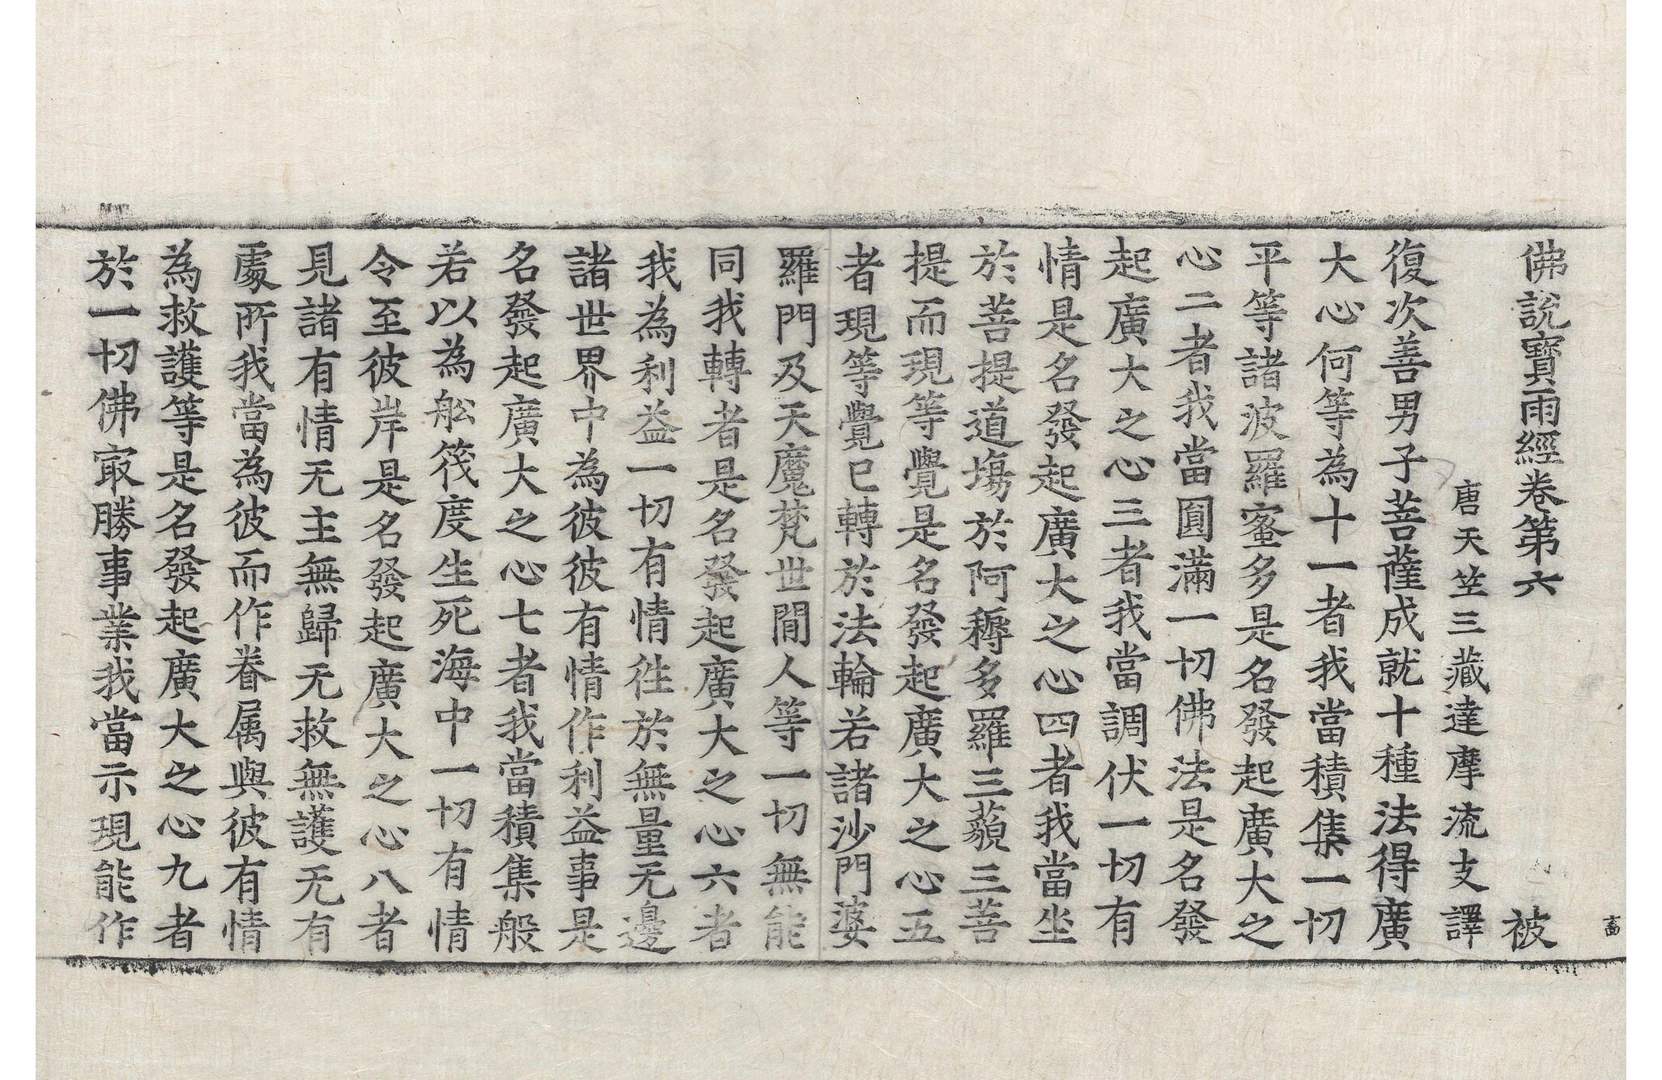 佛說寶雨經卷第六 被
唐天竺三藏達摩流支譯
復次善男子菩薩成就十種法得廣
大心何等為十一者我當積集一切
平等諸波羅蜜多是名發起廣大之
心二者我當圓滿一切佛法是名發
起廣大之心三者我當調伏一切有
情是名發起廣大之心四者我當坐
於菩提道場於阿耨多羅三藐三菩
提而現等覺是名發起廣大之心五
者現等覺已轉於法輪若諸沙門婆
羅門及天魔梵世間人等一切無能
同我轉者是名發起廣大之心六者
我為利益一切有情往於無量无邊
諸世界中為彼彼有情作利益事是
名發起廣大之心七者我當積集般
若以為舩筏度生死海中一切有情
令至彼岸是名發起廣大之心八者
見諸有情无主無歸无救無護无有
處所我當為彼而作眷属與彼有情
為救護等是名發起廣大之心九者
於一切佛㝡勝事業我當示現能作